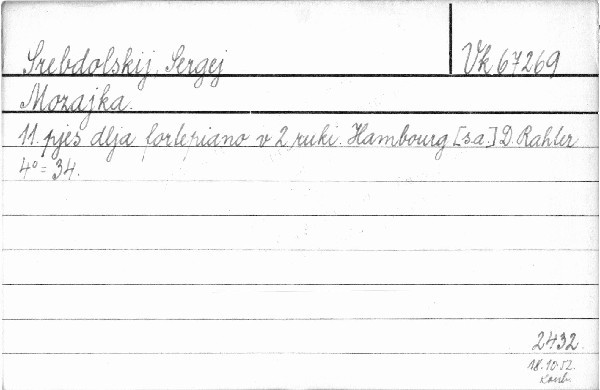 Srebdolskij, Sergej
Vk 67269
Mozajka.
11 pjes dlja fortepiano v 2 ruki. Hambourg [s.a.] D. Rahter
4° = 34.
2432.
18.10.52.